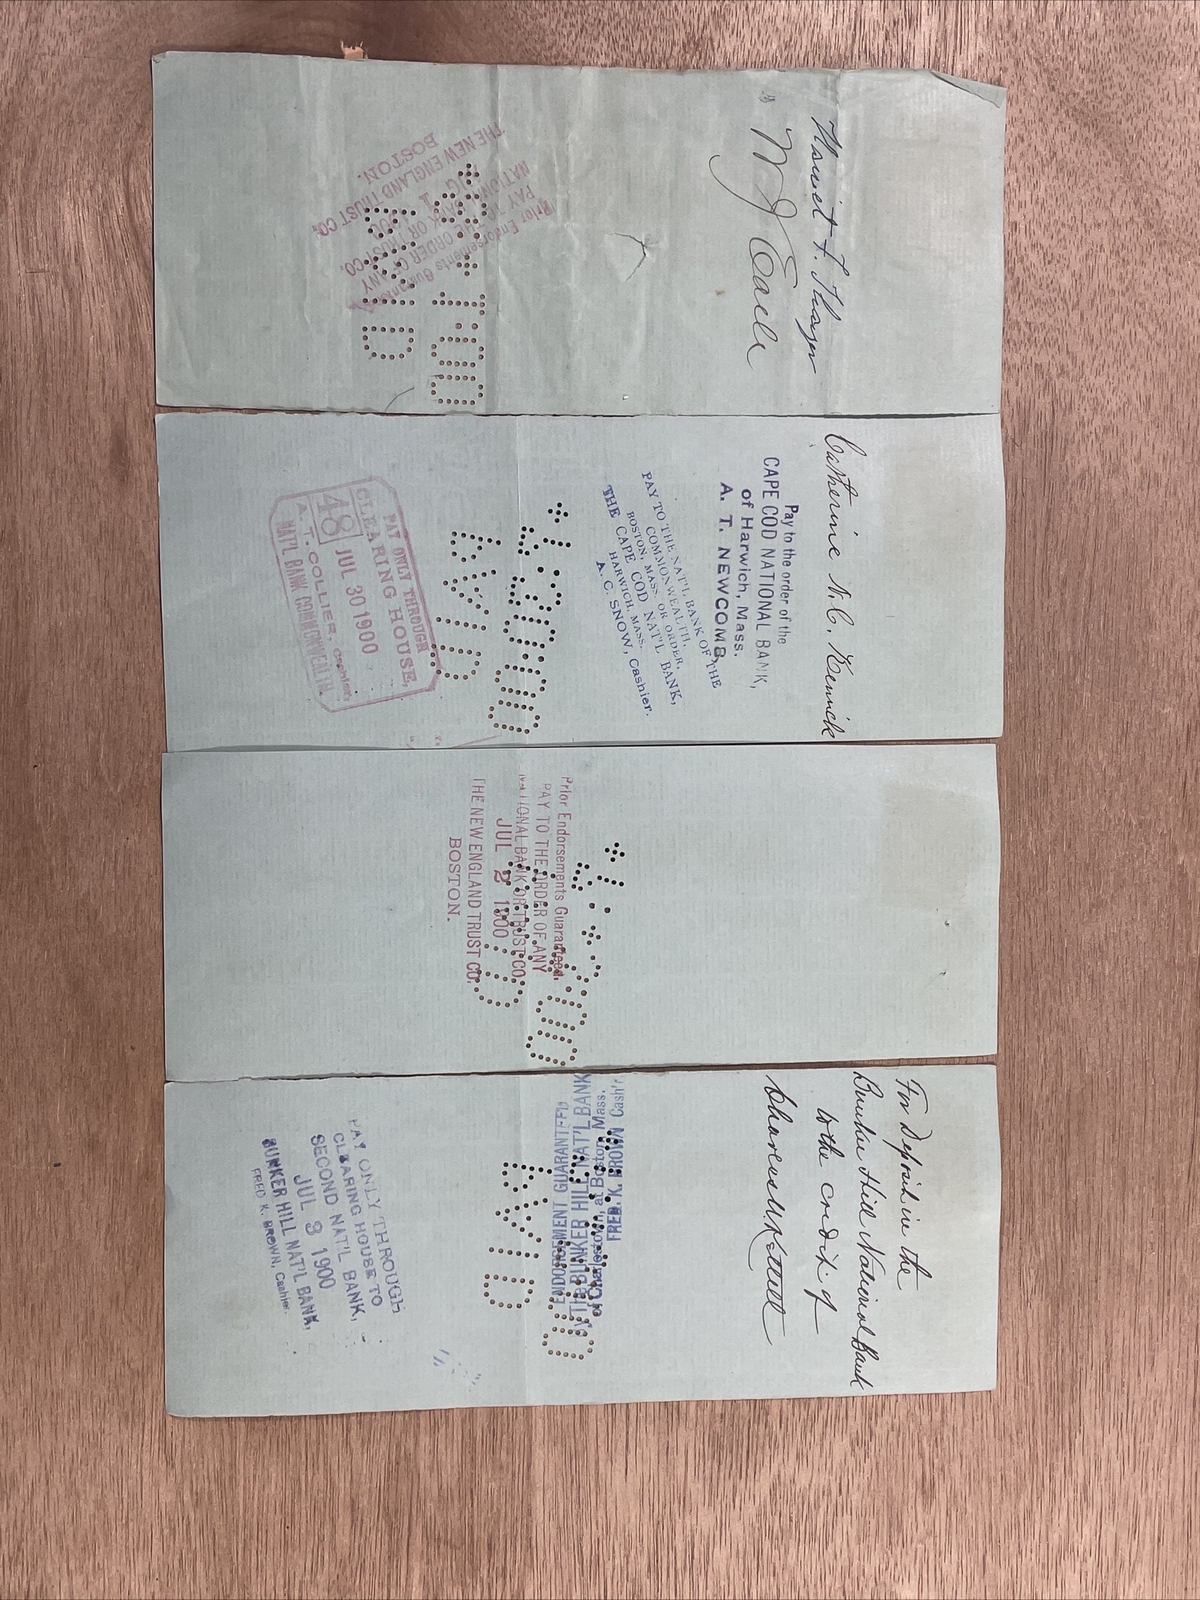 F. Thayer
W J
Prior Endorsements Guaranteed,
PAY TO THE ORDER OF ANY
NATIONAL BANK OR TRUST CO.
THE NEW ENGLAND TRUST CO.
BOSTON.
PAID
Catherine N. C. Kenrick
Pay to the order of the
CAPE COD NATIONAL BANK,
of Harwich, Mass.
A. T. NEWCOMB
PAY TO THE NAT'L BANK OF THE
COMMONWEALTH,
BOSTON, MASS. OR ORDER,
THE CAPE COD NAT'L BANK,
HARWICH, MASS.
A. C. SNOW, Cashier.
PAID
PAY ONLY THROUGH
CLEARING HOUSE,
48 JUL 30 1900
A. T. COLLIER, Cashier,
NAT'L BANK COMMONWEALTH.
Prior Endorsements Guaranteed,
PAY TO THE ORDER OF ANY
NATIONAL BANK OR TRUST CO.
JUL 2 1900
THE NEW ENGLAND TRUST CO.
BOSTON.
For Deposit in the
Bunker Hill National Bank
to the credit of
FRED. K. BROWN Cash'r
of Charlestown, at Boston Mass.
BUNKER HILL NAT'L BANK
ENDORSEMENT GUARANTEED
PAID
PAY ONLY THROUGH
CLEARING HOUSE TO
SECOND NAT'L BANK,
JUL 3 1900
BUNKER HILL NAT'L BANK,
FRED K. BROWN, Cashier.